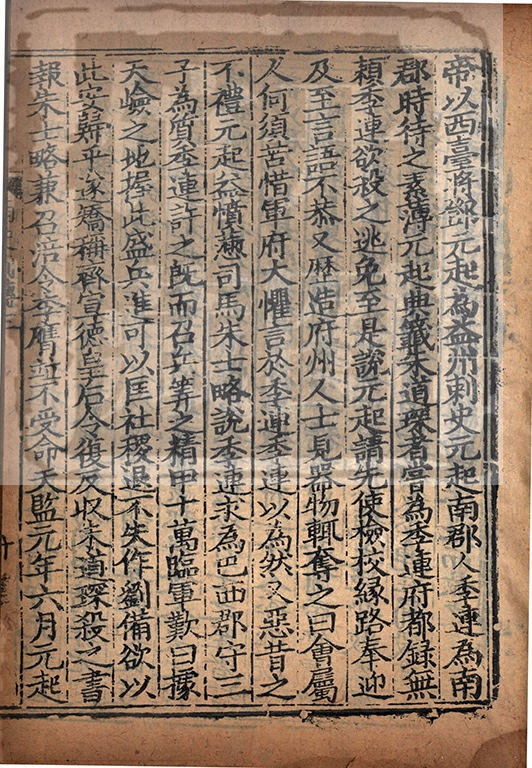 帝以西臺將鄧元起為益州刺史元起南郡人季連為南
郡時待之素薄元起典籤朱道琛者嘗為季連府都録無
頼季連欲殺之逃免至是說元起請先使檢校縁路奉迎
及至言語不恭又歷造府州人士見器物輒奪之曰會屬
人何須苦惜軍府大懼言於季連季連以為然又惡昔之
不禮元起益憤懣司馬朱士略說季連求為巴西郡守三
子為質季連許之既而召兵筭之精甲十萬臨軍歎曰據
天嶮之地握此盛兵進可以匡社稷退不失作劉備欲以
此安歸乎遂矯稱齊宣德皇后令復反収朱道琛殺之書
報朱士略兼召涪令李膺並不受命天監元年六月元起